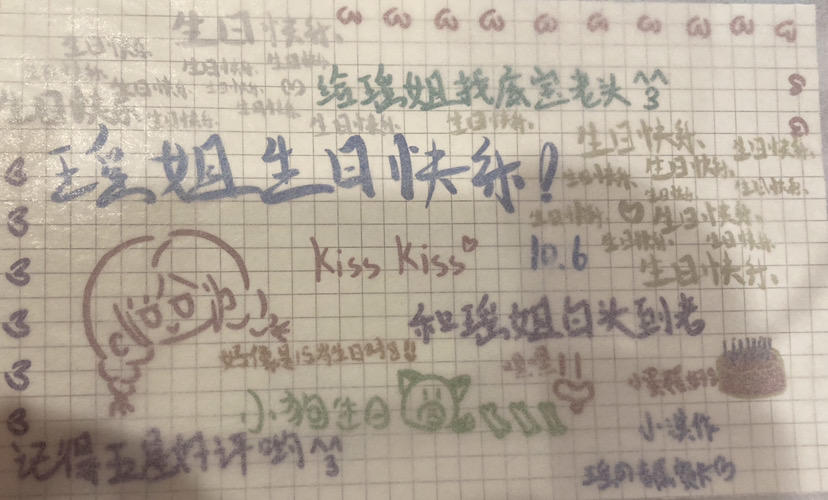 生日快乐、
生日快乐 生日快乐 生日快乐
生日快乐 生日快乐 生日快乐
生日快乐 生日快乐 生日快乐 生日快乐
给瑶姐找底层老头^3^
瑶姐生日快乐!
生日快乐、
生日快乐 生日快乐、 生日快乐
生日快乐 生日快乐
生日快乐 生日快乐、
生日快乐 生日快乐
生日快乐、
Kiss Kiss
10.6
和瑶姐白头到老
好像是15岁生日吧!!
嘿嘿!!
小狗生日
小蛋糕
小漠作
记得五星好评哟^3^